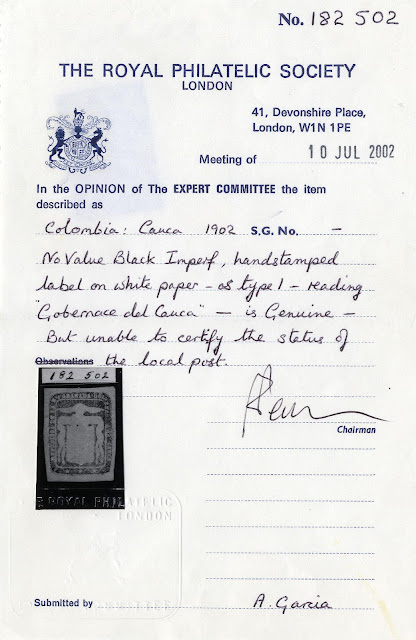 No. 182 502
THE ROYAL PHILATELIC SOCIETY
LONDON
41, Devonshire Place,
London, W1N 1PE
Meeting of 10 JUL 2002
In the OPINION of The EXPERT COMMITTEE the item
described as
Colombia: Cauca 1902 S.G. No. —
No Value Black Imperf, handstamped
label on white paper - as type 1 - reading
"Gobernace del Cauca" - is Genuine -
But unable to certify the status of
Observations the local post.
182 502
Chairman
ROYAL PHILATELIC
LONDON
Submitted by A. Garcia